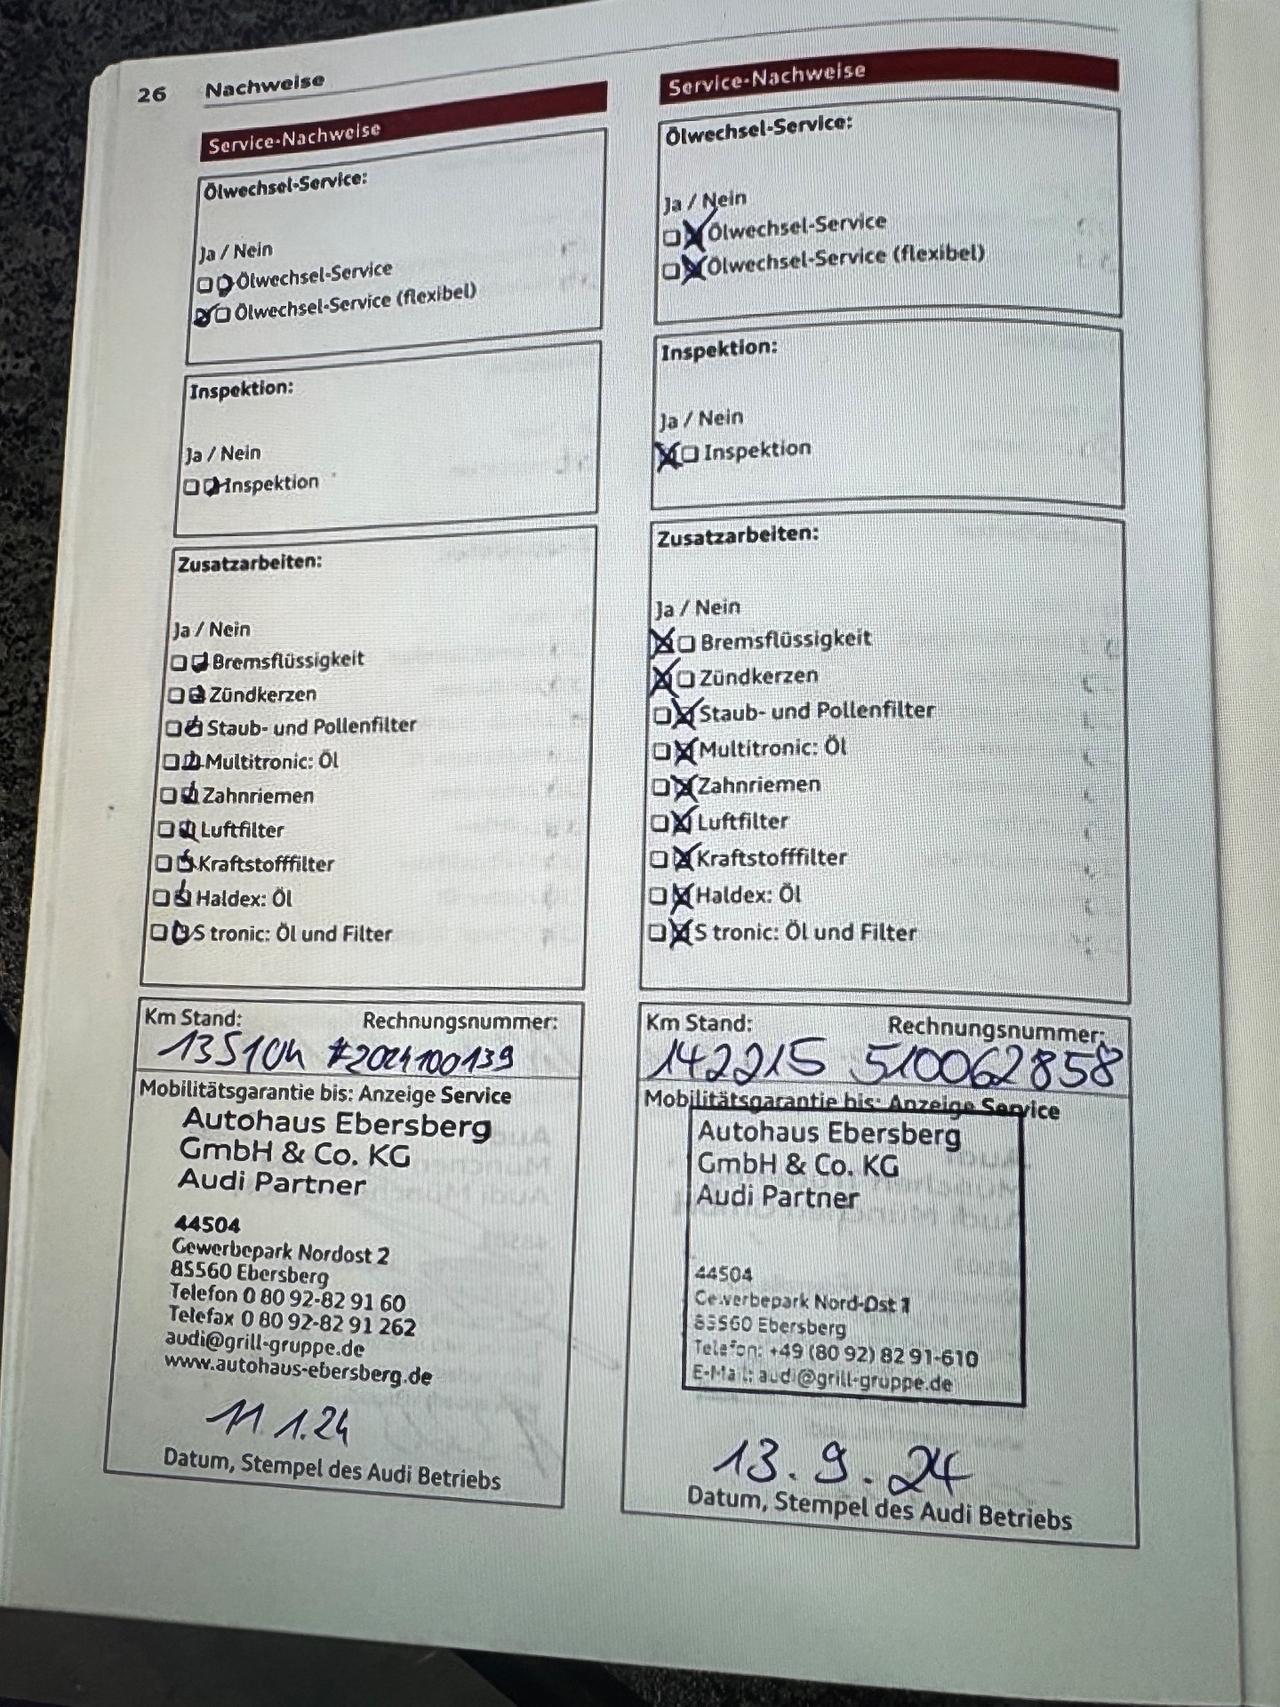 26 Nachweise
Service-Nachweise
Ölwechsel-Service:
Ja / Nein
Ölwechsel-Service
Ölwechsel-Service (flexibel)
Inspektion:
Ja / Nein
Inspektion
Zusatzarbeiten:
Ja / Nein
Bremsflüssigkeit
Zündkerzen
Staub- und Pollenfilter
Multitronic: Öl
Zahnriemen
Luftfilter
Kraftstofffilter
Haldex: Öl
S tronic: Öl und Filter
Km Stand: Rechnungsnummer:
135104 #2024100139
Mobilitätsgarantie bis: Anzeige Service
Autohaus Ebersberg
GmbH & Co. KG
Audi Partner
44504
Gewerbepark Nordost 2
85560 Ebersberg
Telefon 0 80 92-82 91 60
Telefax 0 80 92-82 91 262
audi@grill-gruppe.de
www.autohaus-ebersberg.de
11.1.24
Datum, Stempel des Audi Betriebs
Service-Nachweise
Ölwechsel-Service:
Ja / Nein
Ölwechsel-Service
Ölwechsel-Service (flexibel)
Inspektion:
Ja / Nein
Inspektion
Zusatzarbeiten:
Ja / Nein
Bremsflüssigkeit
Zündkerzen
Staub- und Pollenfilter
Multitronic: Öl
Zahnriemen
Luftfilter
Kraftstofffilter
Haldex: Öl
S tronic: Öl und Filter
Km Stand: Rechnungsnummer:
142215 510062858
Mobilitätsgarantie bis: Anzeige Service
Autohaus Ebersberg
GmbH & Co. KG
Audi Partner
44504
Gewerbepark Nord-Ost 1
85560 Ebersberg
Telefon: +49 (80 92) 82 91-610
E-Mail: audi@grill-gruppe.de
13.9.24
Datum, Stempel des Audi Betriebs